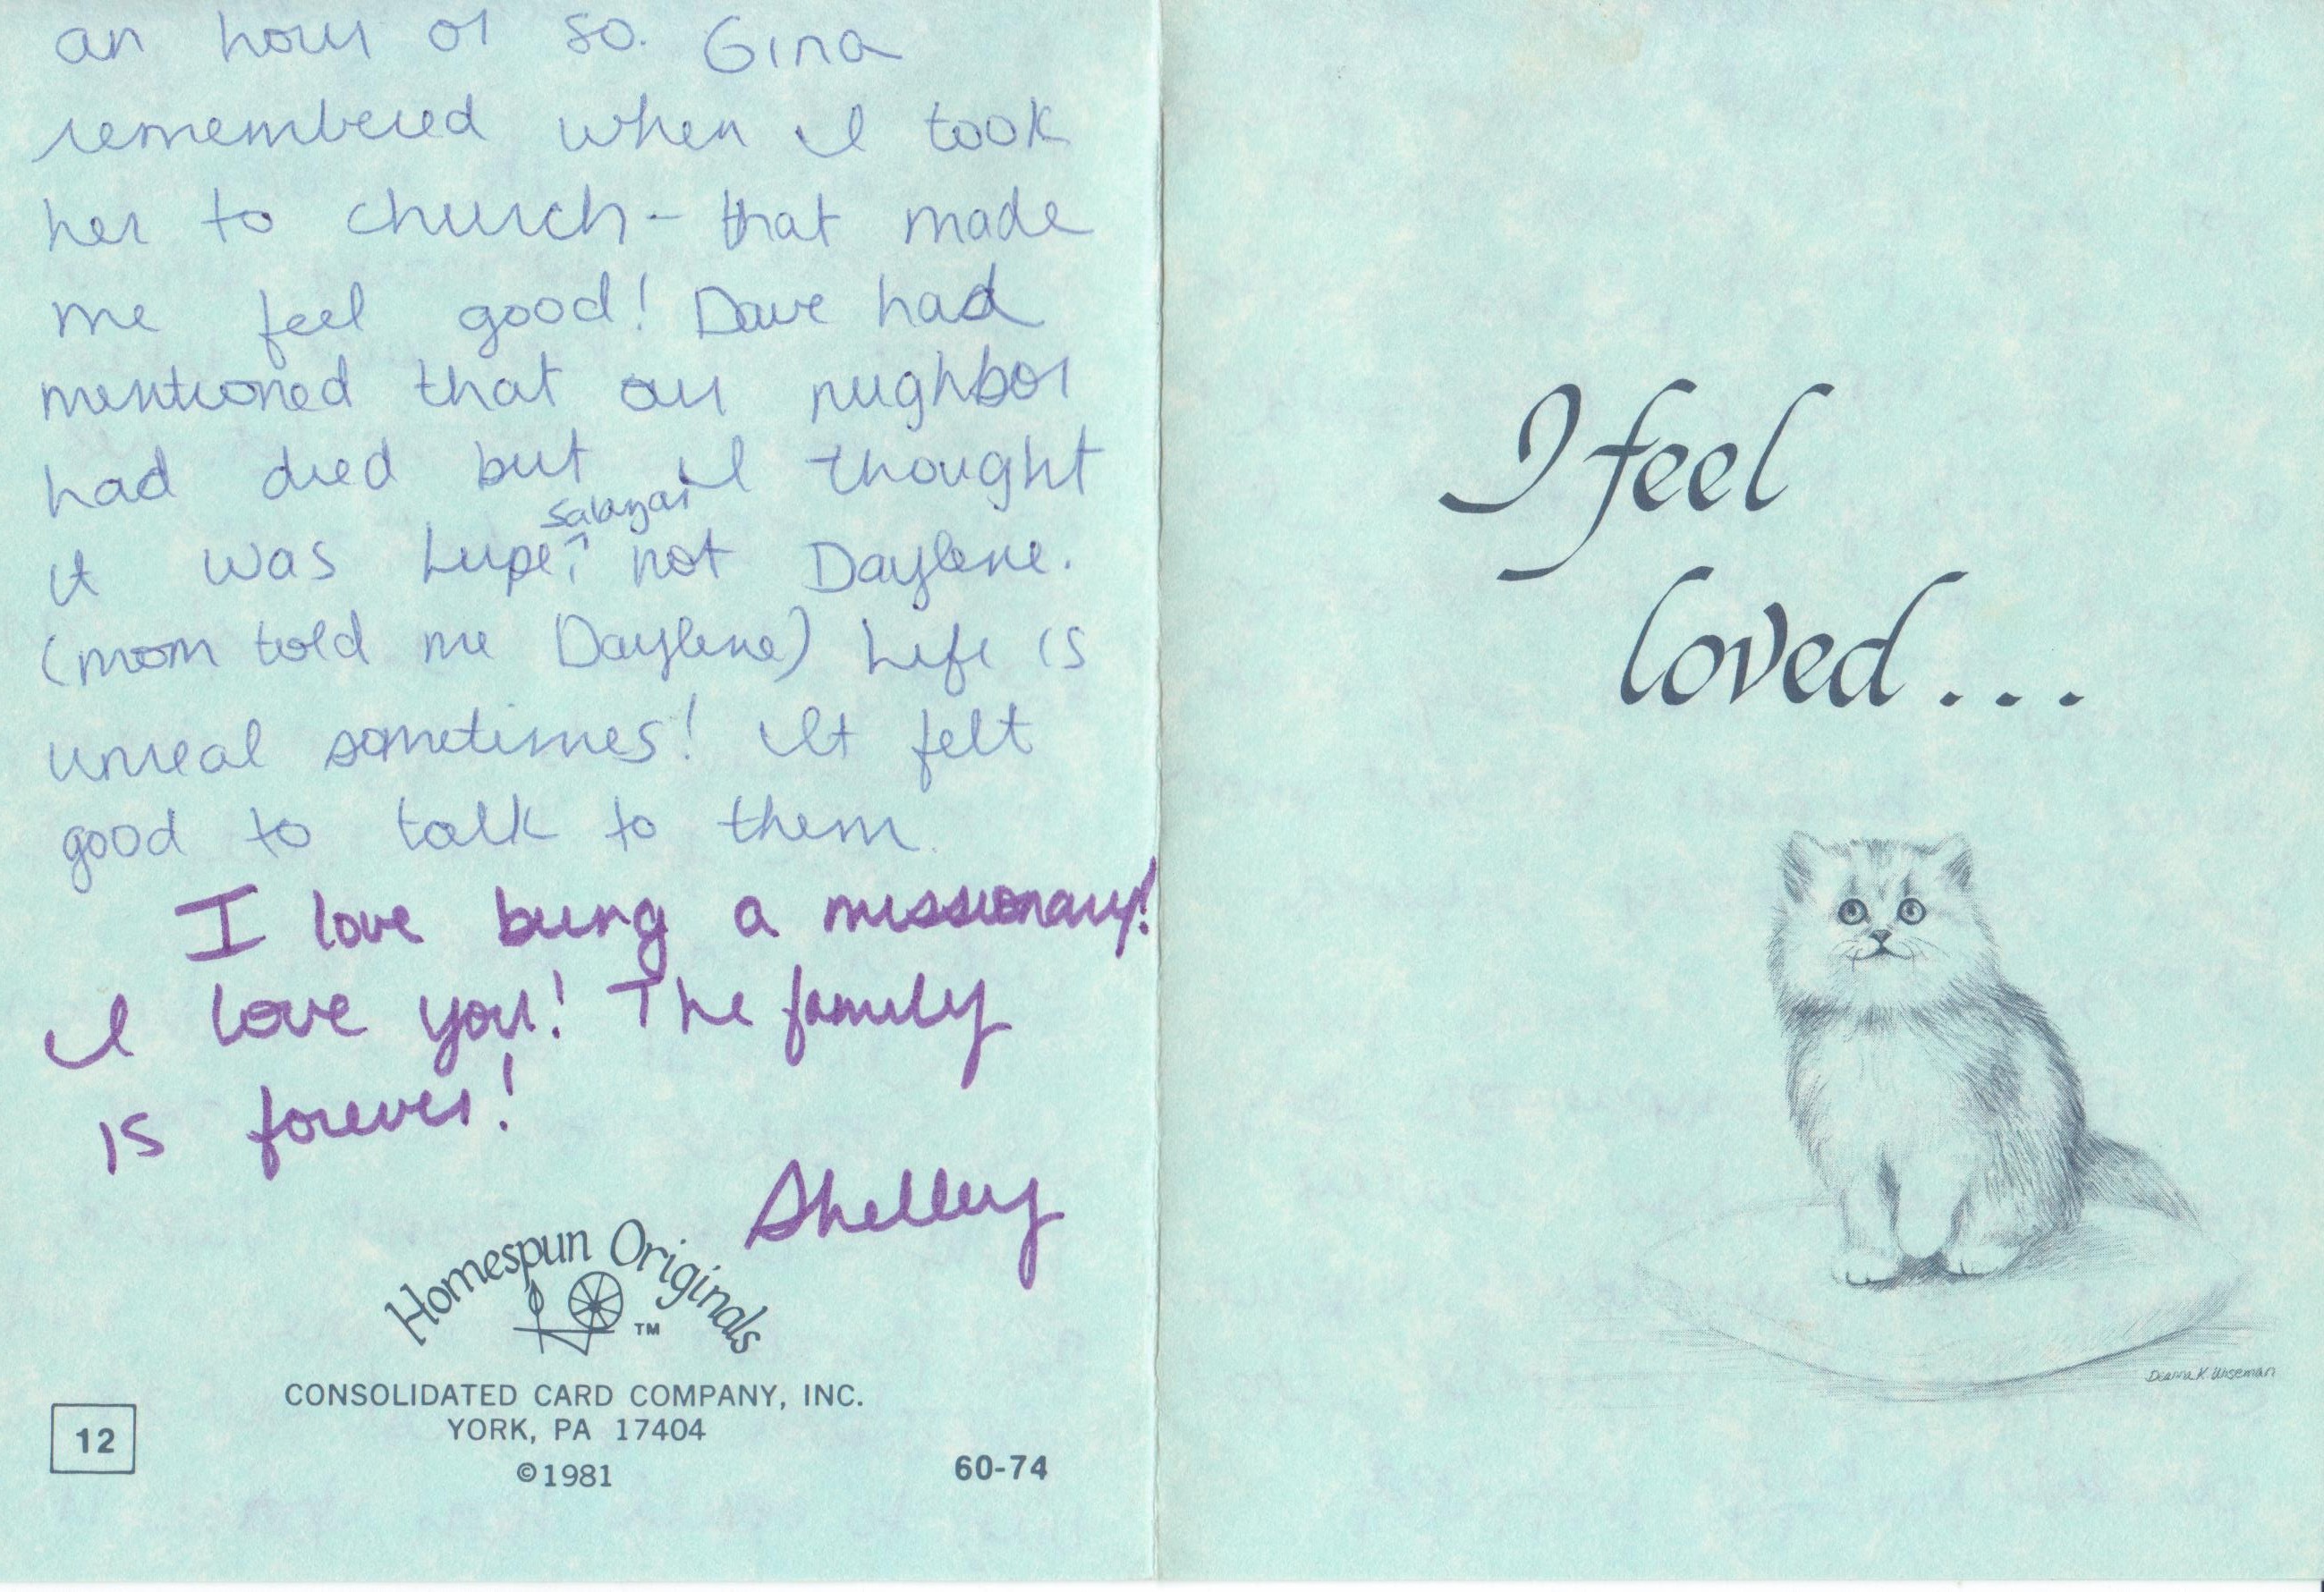 an hour or so. Gina
remembered when I took
her to church - that made
me feel good! Dave had
mentioned that our neighbor
had died but I thought
Salazar
it was Lupe, ^ not Daylene.
(mom told me Daylene) Life is
unreal sometimes! It felt
good to talk to them.
I love being a missionary!
I love you! The family
is forever!
Shelley
Homespun Originals
TM
CONSOLIDATED CARD COMPANY, INC.
YORK, PA 17404
12
©1981
60-74
I feel
loved...
Deanna K. Wiseman